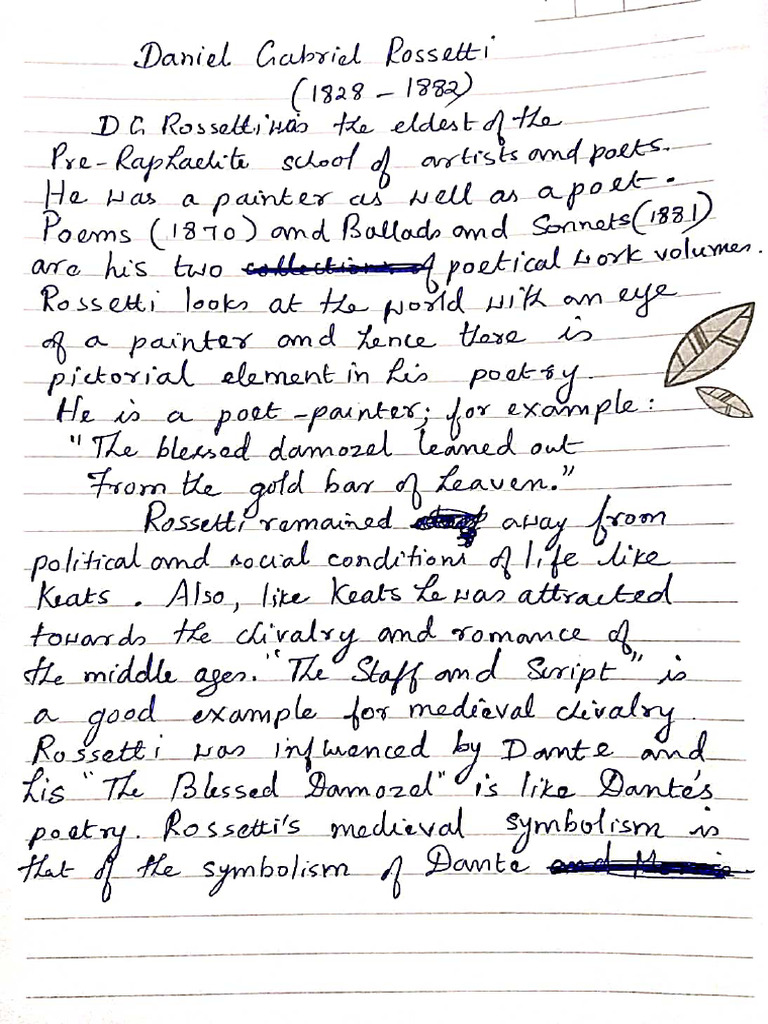 Daniel Gabriel Rossetti
(1828 - 1882)
D G Rossetti was the eldest of the
Pre-Raphaelite school of artists and poets.
He was a painter as well as a poet.
Poems (1870) and Ballads and Sonnets (1881)
are his two collections of poetical work volumes.
Rossetti looks at the world with an eye
of a painter and hence there is
pictorial element in his poetry.
He is a poet-painter; for example:
"The blessed damozel leaned out
From the gold bar of heaven."
Rossetti remained away from
political and social conditions of life like
Keats. Also, like Keats he was attracted
towards the chivalry and romance of
the middle ages. "The Staff and Script" is
a good example for medieval chivalry.
Rossetti was influenced by Dante and
his "The Blessed Damozel" is like Dante's
poetry. Rossetti's medieval symbolism is
that of the symbolism of Dante